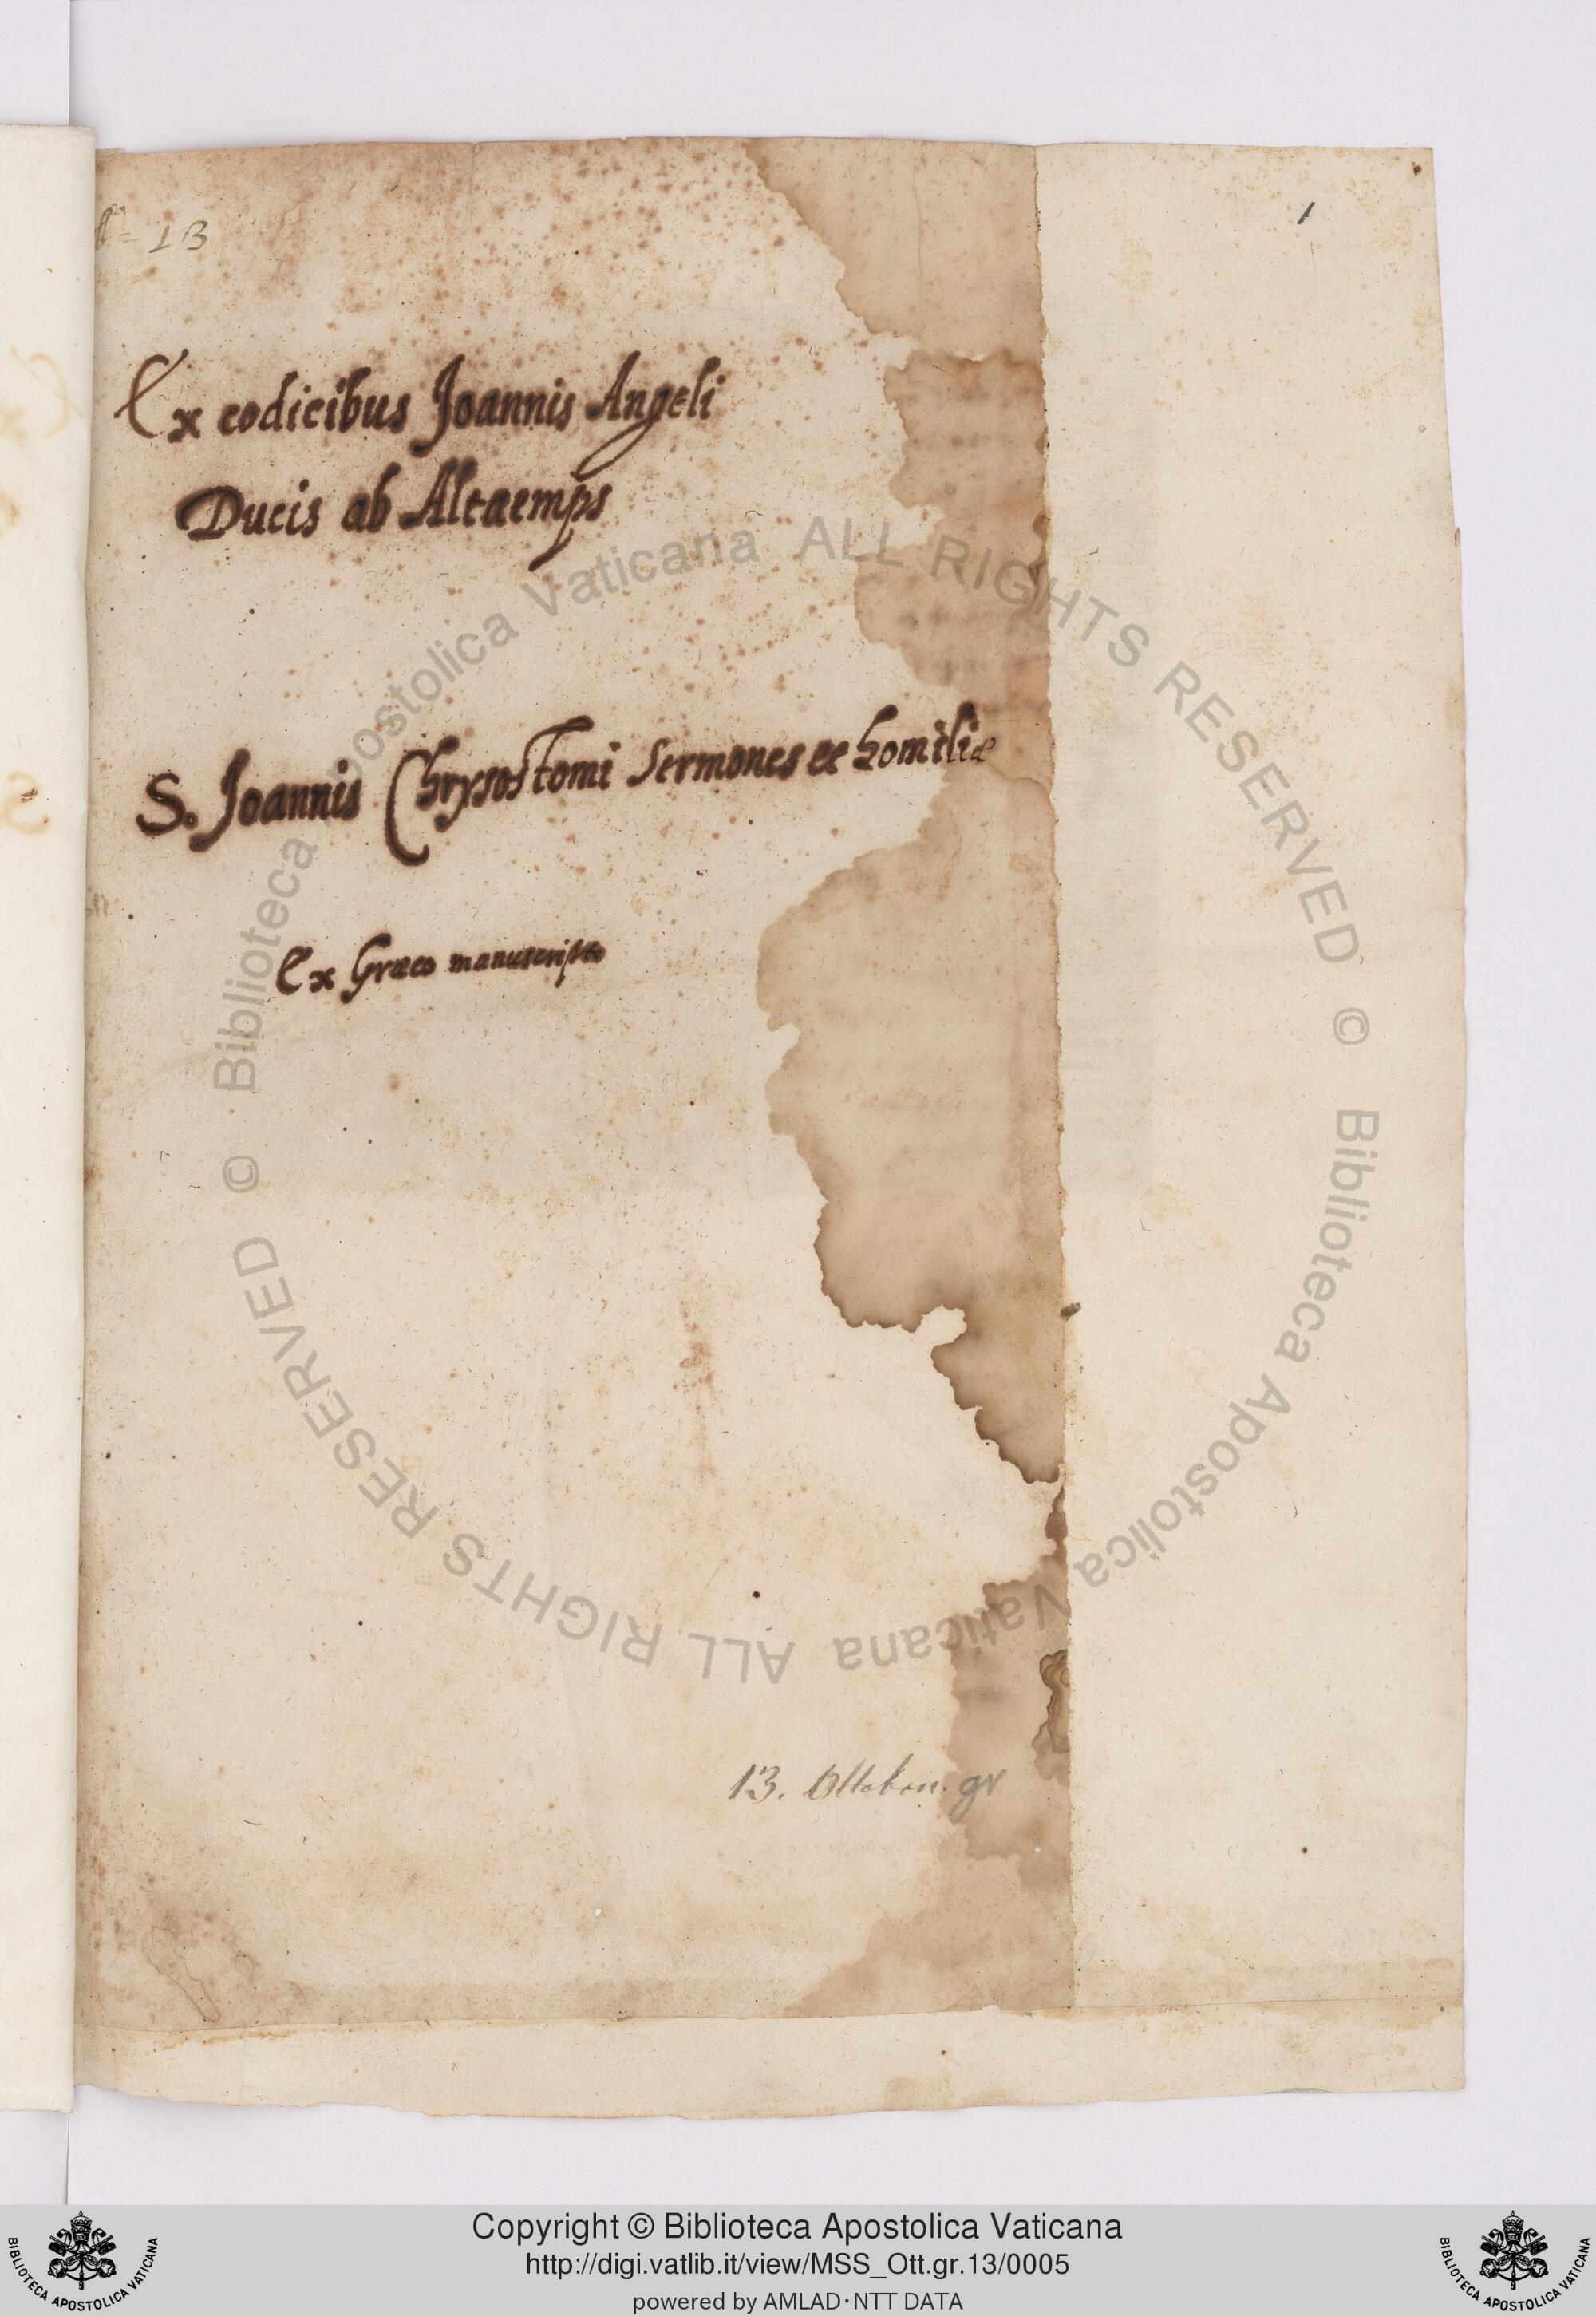 = 13
1
Ex codicibus Joannis Angeli
Ducis ab Altaemps
S. Joannis Chrysostomi Sermones et homiliæ
Ex Græco manuscripto
13. Ottobon. gr
© Biblioteca Apostolica Vaticana ALL RIGHTS RESERVED
© Biblioteca Apostolica Vaticana ALL RIGHTS RESERVED
Copyright © Biblioteca Apostolica Vaticana
http://digi.vatlib.it/view/MSS_Ott.gr.13/0005
powered by AMLAD·NTT DATA
BIBLIOTECA APOSTOLICA VATICANA
BIBLIOTECA APOSTOLICA VATICANA